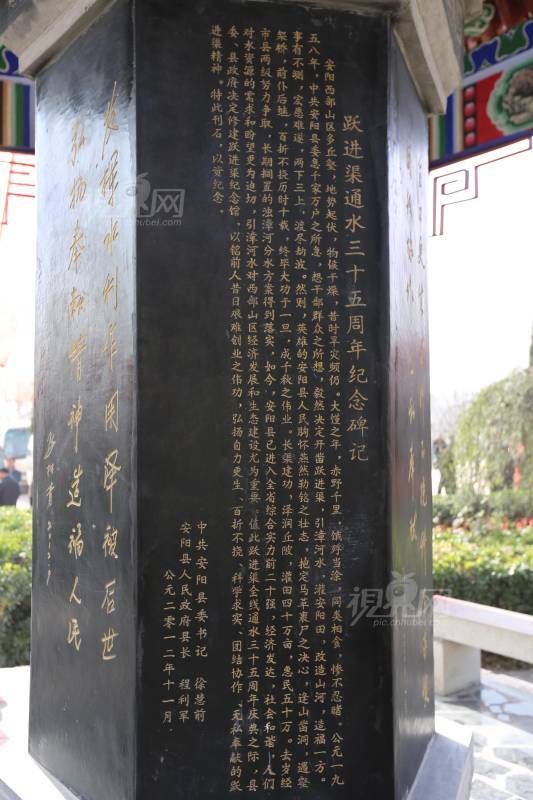 跃进渠通水三十五周年纪念碑记
安阳西部山区多丘壑，地势起伏，物候干燥，昔时旱灾频仍。大馑之年，赤野千里，饿殍当涂，同类相食，惨不忍睹。公元一九
五八年，中共安阳县委急千家万户之所急，想干部群众之所想，毅然决定开凿跃进渠，引漳河水，灌安阳田，改造山河，造福一方。
事有不测，宏愿难遂，两下三上，渡尽劫波。然则，英雄的安阳县人民胸怀燕然勒铭之壮志，抱定马革裹尸之决心，逢山凿洞，遇壑
架桥，前仆后继，百折不挠历时十载，终毕大功于一旦，成千秋之伟业。长渠建功，泽润丘陂，灌田四十万亩，惠民五十万。去岁经
市县两级努力争取，长期搁置的浊漳河分水方案得到落实，如今，安阳县已进入全省综合实力前二十强，经济发达，社会和谐，人们
对水资源的需求和盼望更为迫切，引漳河水对西部山区经济发展和生态建设尤为重要。值此跃进渠全线通水三十五周年庆典之际，县
委、县政府决定修建跃进渠纪念馆，以铭前人昔日艰难创业之伟功，弘扬自力更生、百折不挠、科学求实、团结协作、无私奉献的跃
进渠精神。特此刊石，以资纪念。
中共安阳县委书记 徐慧前
安阳县人民政府县长 程利军
公元二零一二年十一月
发挥水利作用泽被后世
弘扬奉献精神造福人民
視界网
pic.cnhubei.com
視界网
pic.cnhubei.com